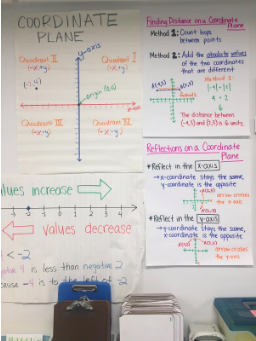 COORDINATE
PLANE
y-axis
Quadrant II
(-x,+y)
Quadrant I
(+x,+y)
origin (0,0)
x-axis
Quadrant III
(-x,-y)
Quadrant IV
Finding Distance on a Coordinate
Plane
Method 1: Count hops
between points
Method 2: Add the absolute values
of the two coordinates
that are different
Method 2
The distance between
Reflections on a Coordinate
Plane
*Reflect in the x-axis
→x-coordinate stays the same,
y-coordinate is the opposite
the x-axis
*Reflect in the y-axis
→y-coordinate stays the same,
x-coordinate is the opposite
the y-axis
lues increase
-3 -2 -1 0 1 2 3 4
values decrease
< -2
4 is less than negative 2
cause -4 is to the left of -2